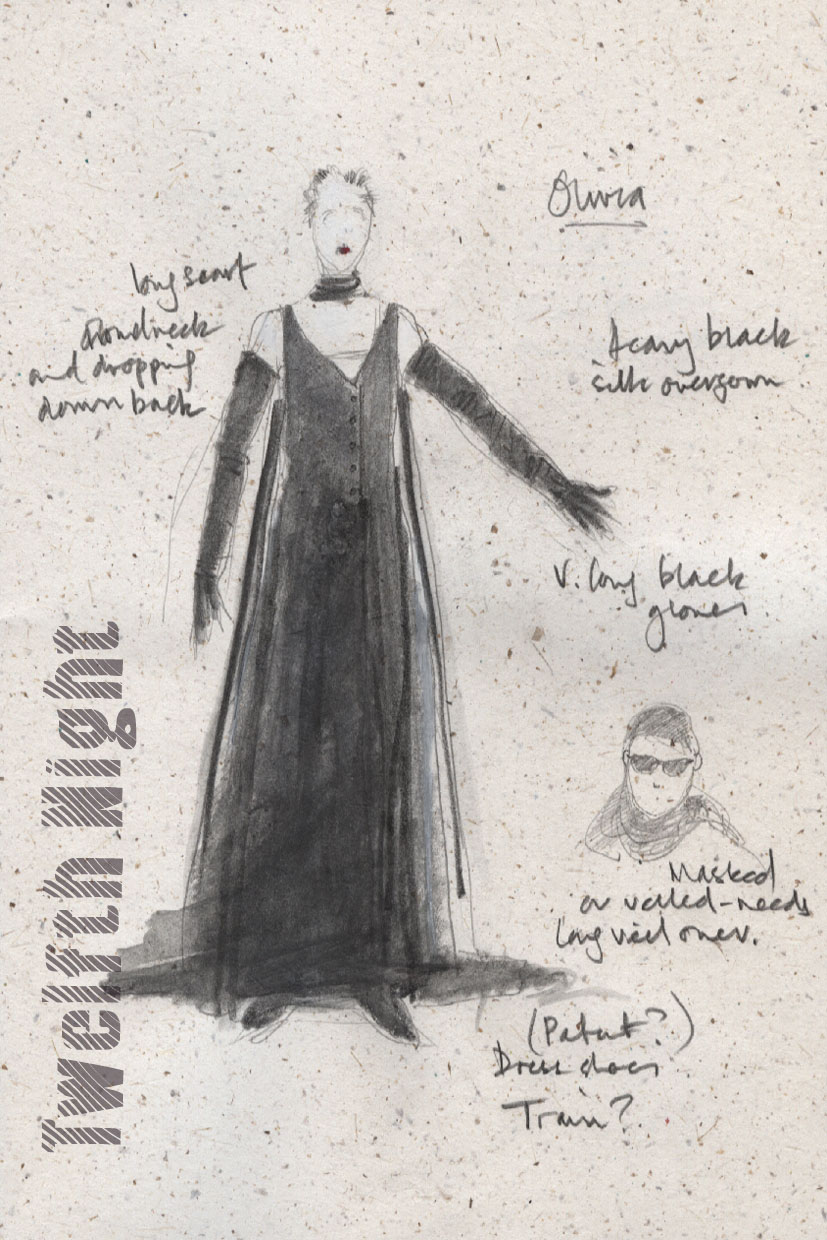 Olivia
long scarf
Round neck
and dropping
down back
heavy black
silk overgown
V. long black
gloves
Masked
or veiled - needs
long veil over.
(Patent?)
Dress shoes
Train?
Twelfth Night